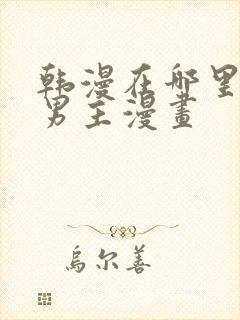 韩漫在哪里
男主漫畫
烏尔善